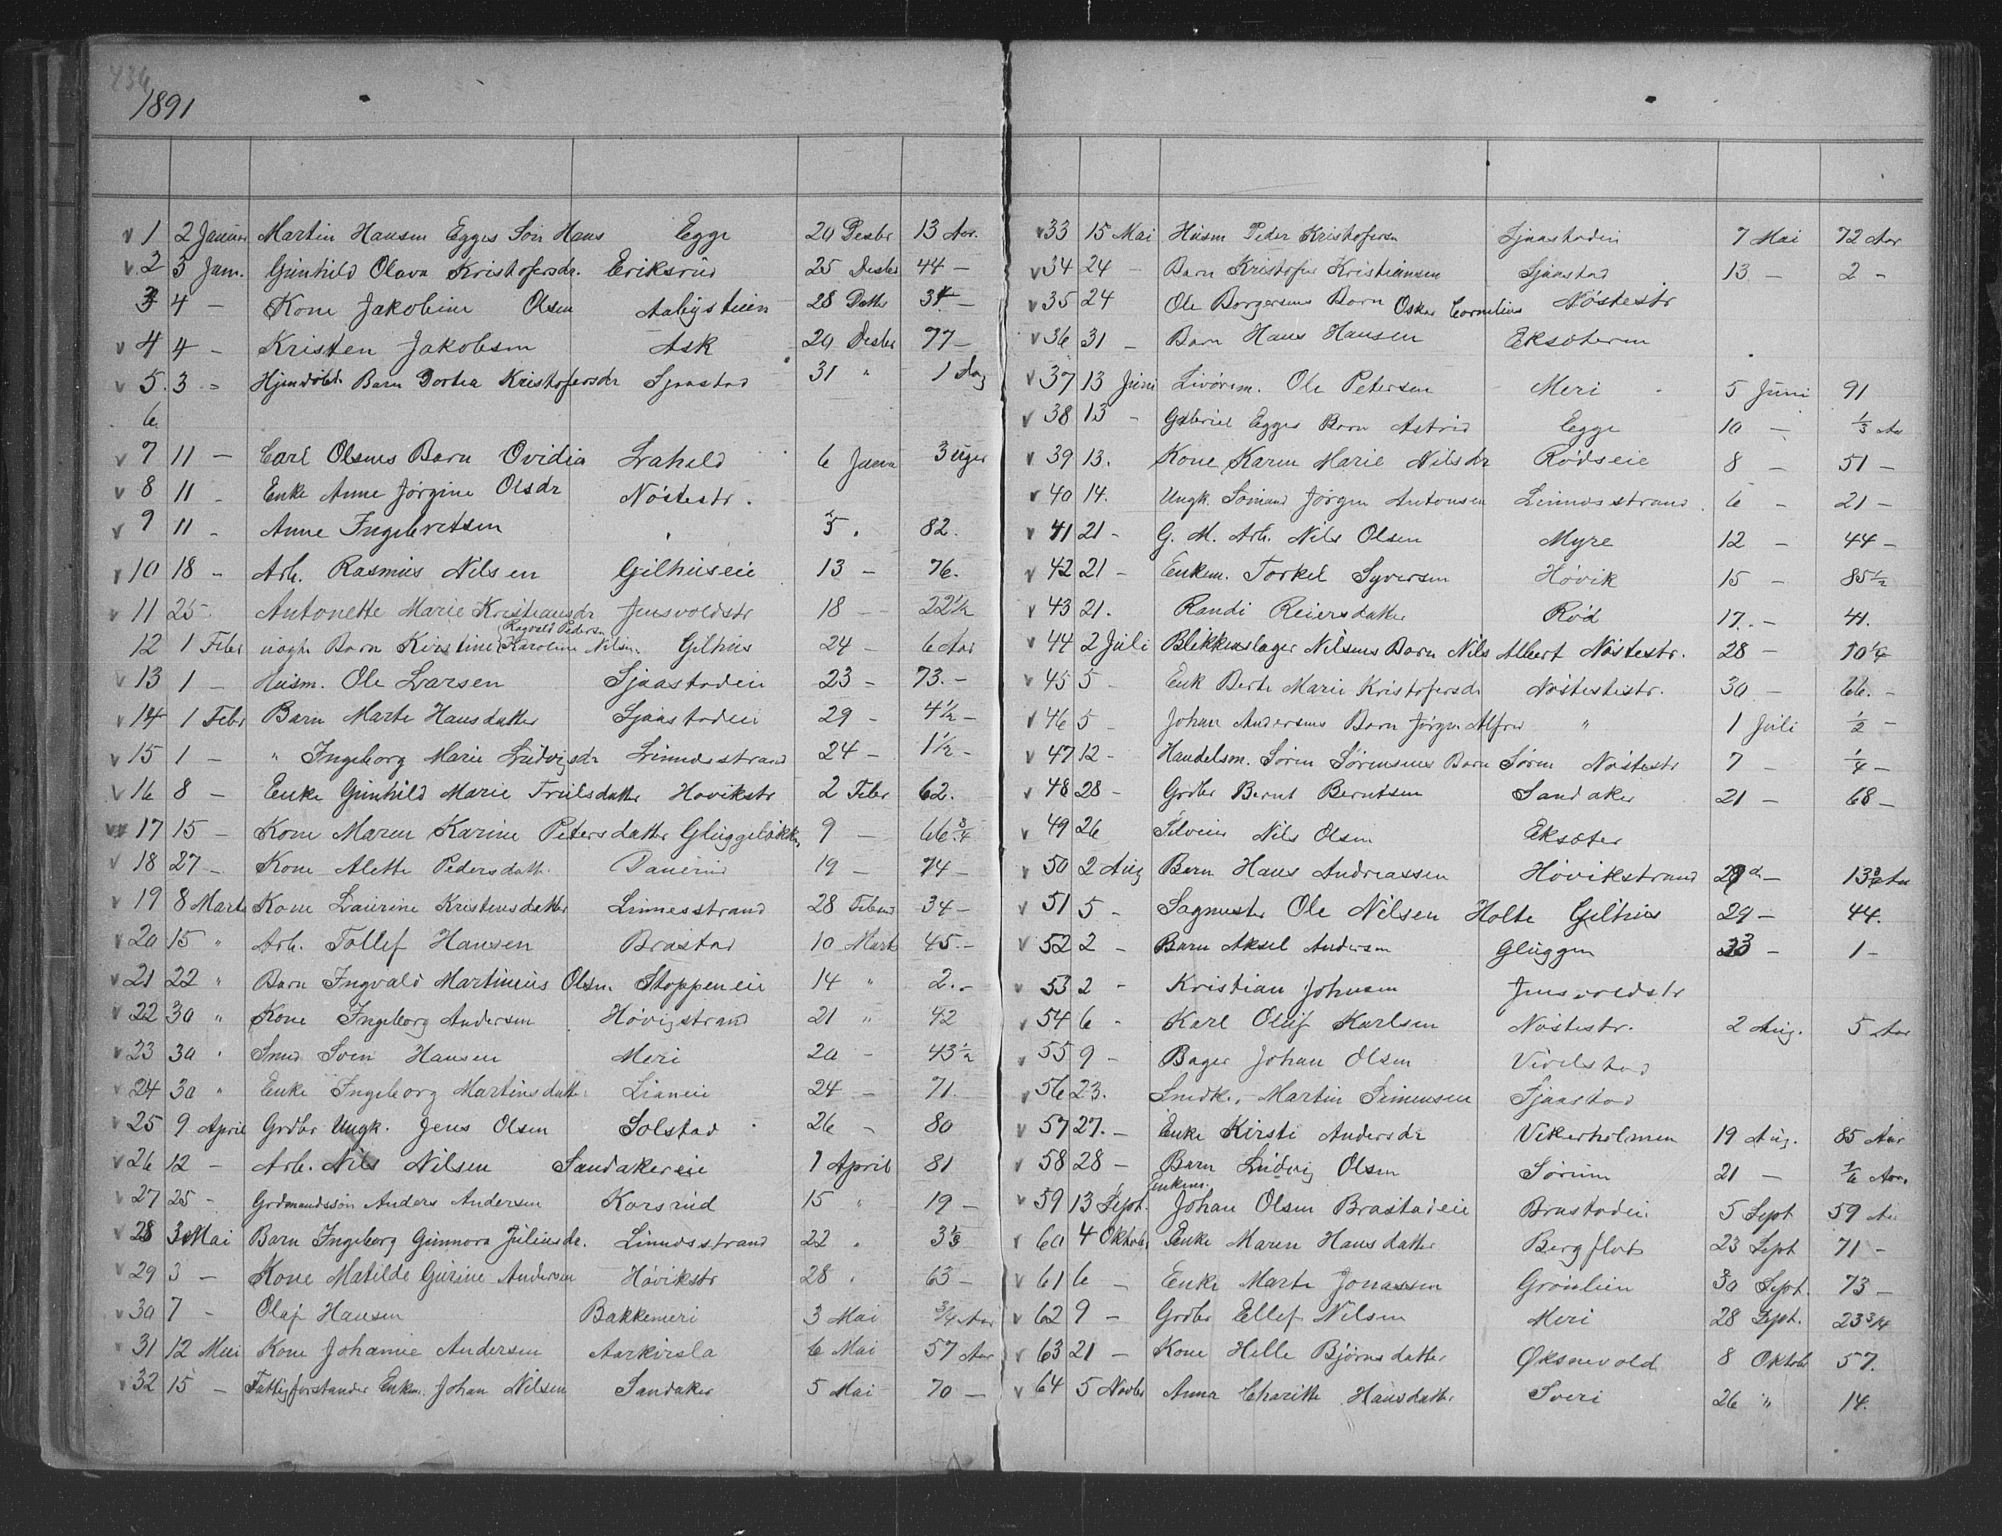 1891
1 2 Januar Martin Hansen Egges Søn Hans Egge 20 Desbr 13 Aar.
2 3 Jan. Gunhild Olava Kristofersdr. Eriksrud 25 Desbr 44 —
3 4 — Kone Jakobine Olsen 28
4 4 — Kristen Jakobsen Ask 20 Desbr 77 —
5. 3 Barn Dortea Kristofersdr Sjaastad 31 " 1 Dag
6
7 11 — Carl Olsens Barn Ovidia Lahell 6 Januar 3 uger
8 11 Enke Anne Jørgine Olsdr Nøstestr.
9 11 — Anne Ingebretsen 5 " 82.
10 18 — Arb. Rasmus Nilsen Gilhuseie 13 — 76.
11 25 Antonette Marie Kristiansdr Jensvoldstr 18 — 22½
Ragvald Pedersen
12 1 Febr uægte Barn Kirstine Karoline Nilsen. Gilhus 24 — 6 Aar
13 1 — Husm. Ole Larsen Sjaastadeie 23 — 73. —
14 1 Febr Barn Marte Hansdatter Sjaastadeie 29 — 4½ —
15 1 — " Ingeborg Marie Ludvigsdr Linnesstrand 24 — 1½ —
16 8 — Enke Gunhild Marie Trulsdatter Hovikstr 2 Febr 62.
17 15 — Kone Maren Karine Petersdatter Gluggebakken 9 — 66 ¾
18 27 — Kone Alette Pedersdatt. 19 — 74 —
19 8 Marts Kone Laurine Kristensdatter Linnesstrand 28 Februar 34 —
20 15 " Arb. Tollef Hansen Brastad 10 Marts 45. —
21 22 " Barn Ingvald Martinius Olsen Stoppeneie 14 " 2. —
22 30 " Kone Ingeborg Andersen Høvigstrand 21 " 42
23 30 " Smed Sven Hansen Meri 20 — 43½
24 30 " Enke Ingeborg Martinsdatter Lianeie 24 — 71.
25 9 April Grdbr Ungk. Jens Olsen Solstad 26 — 80
26 12 — Arb. Nils Nilsen Sandakereie 7 April 81
27 25 — Grdmandssøn Anders Andersen Korsrud 15 " 19 —
28 3 Mai Barn Ingeborg Gunnora Juliusdr. Linnesstrand 22 " 3⅓
29 3 — Kone Matilde Gurine Andersen Høvikstr 28 " 63 —
30 7 — Olaf Hansen Bakkemeri 3 Mai ¾ Aar
31 12 Mai Kone Johanne Andersen Aarkirsla 6 Mai 57 Aar
32 15 — Fattigforstander Enkm. Johan Nilsen Sandaker 5 Mai 70 —
33 15 Mai Husm Peder Kristofersen Sjaastadeie 7 Mai 72 Aar
34 24 — Barn Kristofer Kristiansen Sjaastad 13 — 2 —
35 24 Ole Borgersens Barn Oskar Cornelius Nøstestr
36 31 — Barn Hans Hansen Eksæteren
37 13 Juni Livørem. Ole Petersen Meri 5 Juni 91
38 13 — Gabriel Egges Barn Astrid Egge 10 — ⅓ Aar
39 13. Kone Karen Marie Nilsdr Rødseie 8 — 51 —
40 14. Ungk. Sømand Jørgen Antonsen Linnesstrand 6 — 21 —
41 21 — G. M. Arb. Nils Olsen Myre 12 — 44 —
42 21 — Enkem. Torkel Syversen Høvik 15 — 85½
43 21. Randi Reiersdatter Rød 17. — 41.
44 2 Juli Blikkenslager Nilsens Barn Nils Albert Nøstestr. 28 — 10¼
45 5 Enk Berte Marie Kristofersdr Nøstestestr. 30 — 66. —
46 5 Johan Andersens Barn Jørgen Alfred " 1 Juli ½ —
47 12 — Handelsm. Søren Sørensens Barn Søren Nøstestr 7 — ¼ —
48 28 — Grdbr Bernt Berntsen Sandaker 21 — 68 —
49 26 Nils Olsen Eksæter
50 2 Aug Barn Hans Andreassen Høvikstrand 13¾ Aar
51 5 — Sagmester Ole Nilsen Holte Gilhus 29 — 44.
52 2 — Barn Aksel Andersen Gluggen 1 —
53 2 — Kristian Johnsen Jensvoldstr
54 6 — Karl Oluf Karlsen Nøstestr. 2 Aug. 5 Aar
55 9 — Bager Johan Olsen Vivelstad
56 23. Smdk. Martin Simensen Sjaastad
57 27. — Enke Kirsti Andersdr Vikerholmen 19 Aug. 85 Aar
58 28 — Barn Ludvig Olsen Sørum 21 — ⅙ Aar.
59 13 Sept. Enkem. Johan Olsen Brastadeie Brastadeie 5 Sept 59 Aar
60 4 Oktob Enke Maren Hansdatter Bergflot 23 Sept 71 —
61 6 — Enke Marte Jonassen Grønlien 30 Sept. 73 —
62 9 — Grdbr Ellef Nilsen Meri 28 Sept. 23 3/4
63 21 — Kone Helle Bjørnsdatter Øksnevold 8 Oktob 57.
64 5 Novbr Anna Charitte Hansdatter Sveri 26 " 14.